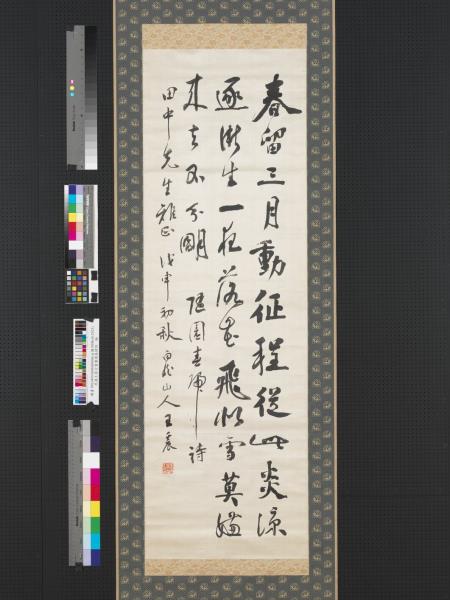 春留三月動征程從此炎涼
逐漸生一夜落花飛似雪莫嫌
來去不分明 隨園春
詩
田中先生雅正 戊申初秋 白龍山人王震